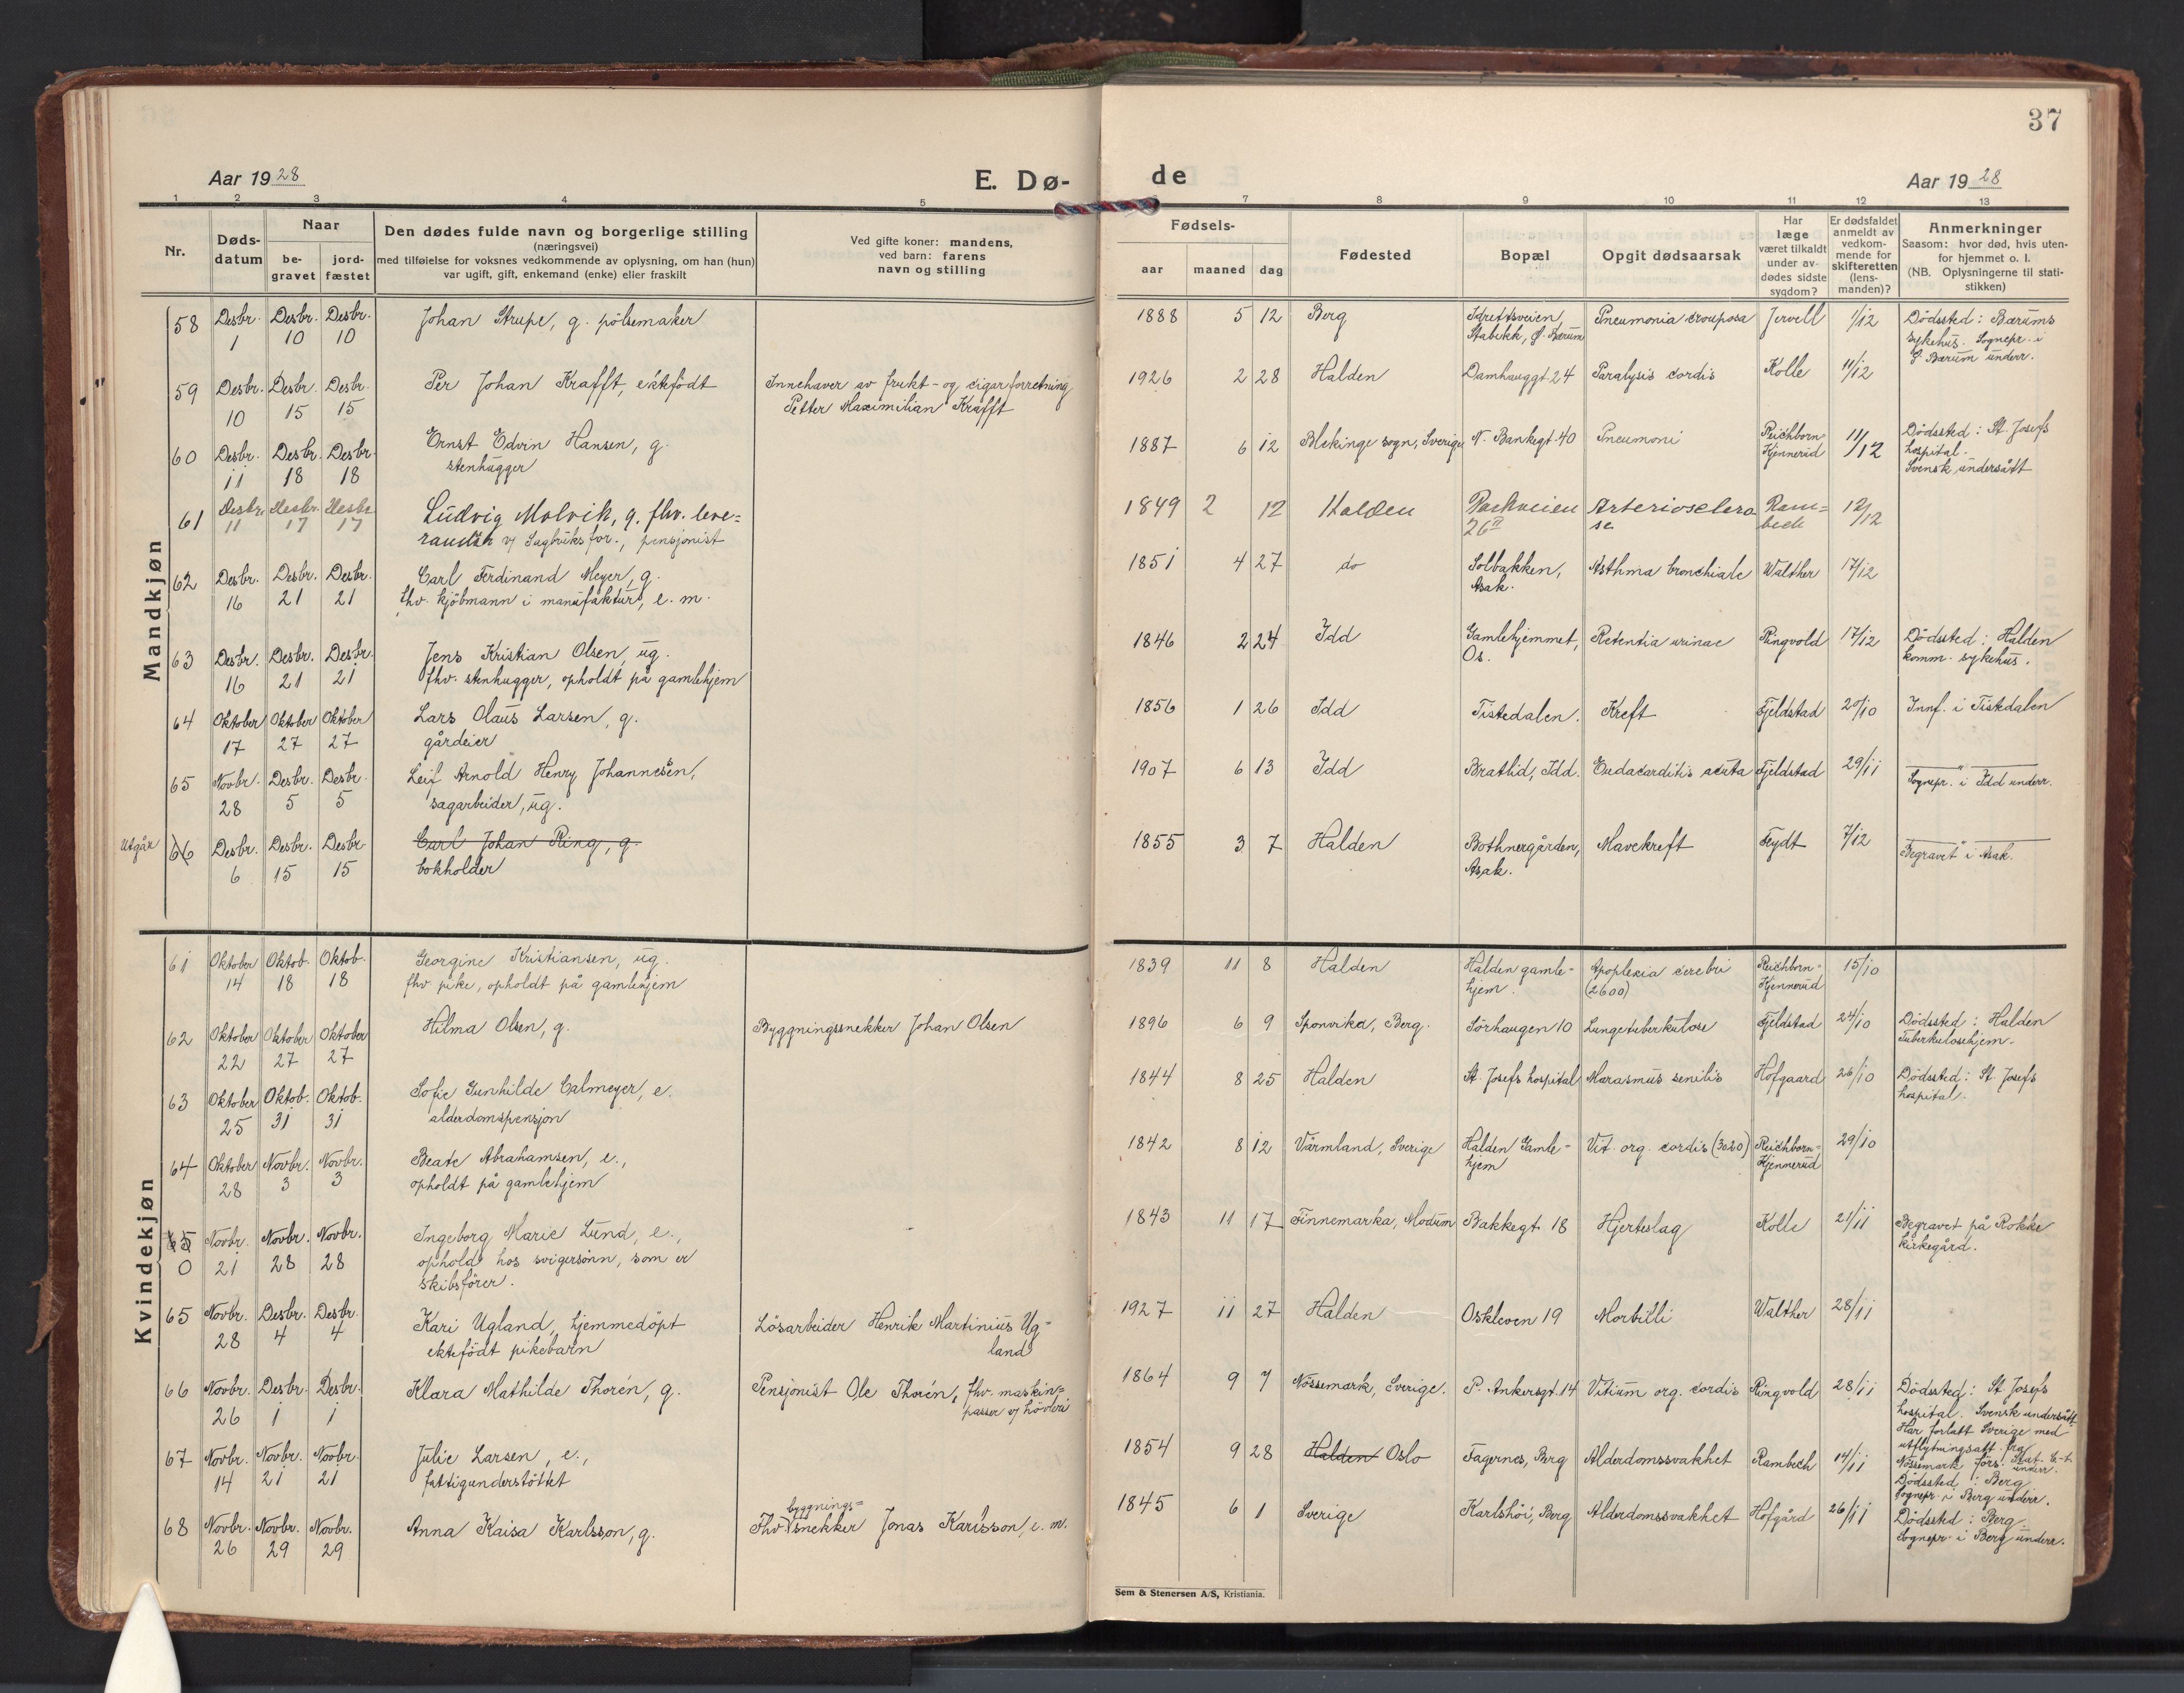 37
Aar 1928
E. Dø-
de
Aar 1928
1 2 3 4 5 7 8 9 10 11 12 13
Nr.
Døds-
datum
Naar
be-
gravet
jord-
fæstet
Den dødes fulde navn og borgerlige stilling
(næringsvei)
med tilføielse for voksnes vedkommende av oplysning, om han (hun)
var ugift, gift, enkemand (enke) eller fraskilt
Ved gifte koner: mandens,
ved barn: farens
navn og stilling
Fødsels-
aar maaned dag
Fødested
Bopæl
Opgit dødsaarsak
Har
læge
været tilkaldt
under av-
dødes sidste
sygdom?
Er dødsfaldet
anmeldt av
vedkom-
mende for
skifteretten
(lens-
manden)?
Anmerkninger
Saasom: hvor død, hvis uten-
for hjemmet o. l.
(NB. Oplysningerne til stati-
stikken)
Mandkjøn
58 Desbr. Desbr. Desbr. Johan Strupe, g. pølsemaker 1888 5 12 Berg Idrettsveien, Pneumonia crouposa Jervell 1/12 Dødssted: Bærums
1 10 10 Stabekk, Ø. Bærum sykehus. Sognepr. i
Ø. Bærum underr.
59 Desbr. Desbr. Desbr. Per Johan Krafft, ektefødt Innehaver av frukt- og cigarforretning 1926 2 28 Halden Damhauggt 24 Paralysis cordis Kolle 11/12
10 15 15 Petter Maximilian Krafft
60 Desbr. Desbr. Desbr. Ernst Edvin Hansen, g. 1887 6 12 Blekinge sogn, Sverige N. Bankegt. 40 Pneumoni Reichborn- 11/12 Dødssted: St. Josefs
11 18 18 stenhugger Kjennerud hospital.
Svensk undersått
61 Desbr. Desbr. Desbr. Ludvig Molvik, g. fhv. leve= 1849 2 12 Halden Parkveien Arterioselero Ram= 12/12
11 17 17 v/ Sagbruksfor., pensjonist 26II se bech
62 Desbr. Desbr. Desbr. Carl Ferdinand Meyer, g. 1851 4 27 do Solbakken, Asthma bronchiale Walther 17/12
16 21 21 fhv. kjøbmann i manufaktur, e. m. Asak.
63 Desbr. Desbr. Desbr. Jens Kristian Olsen, ug. 1846 2 24 Idd Gamlehjemmet, Retentia urinae Ringvold 17/12 Dødssted: Halden
16 21 21 fhv. stenhugger, opholdt på gamlehjem Os. komm. sykehus.
64 Oktober Oktober Oktober Lars Olaus Larsen, g. 1856 1 26 Idd Tistedalen. Kreft Fjeldstad 20/10 Innf. i Tistedalen
17 27 27 gårdeier
65 Novbr. Desbr. Desbr. Leif Arnold Henry Johannesen, 1907 6 13 Idd Bratlid, Idd. Endacarditis acuta Fjeldstad 29/11 — " —
28 5 5 sagarbeider, ug. Sognepr. i Idd underr.
Utgår 66 Desbr. Desbr. Desbr. Carl Johan Ring, g. 1855 3 7 Halden Bothnergården, Mavekreft Feydt 7/12 — " —
6 15 15 bokholder Asak. Begravet i Asak.
Kvindekjøn
61 Oktober Oktob. Oktob. Georgine Kristiansen, ug. 1839 11 8 Halden Halden gamle- Apoplexia cerebri Reichborn- 15/10
14 18 18 fhv pike, opholdt på gamlehjem hjem. (2600) Kjennerud
62 Oktober Oktober Oktober Hilma Olsen, g. Byggningssnekker Johan Olsen 1896 6 9 Sponvika, Berg. Sørhaugen 10 Lungetuberkulose Fjeldstad 24/10 Dødssted: Halden
22 27 27 Tuberkulosehjem.
63 Oktober Oktob. Oktob. Sofie Gunhilde Calmeyer, e. 1844 8 25 Halden St. Josefs hospital Marasmus senilis Hofgaard 26/10 Dødssted: St Josefs
25 31 31 alderdomspensjon hospital.
64 Oktober Novbr. Novbr. Beate Abrahamsen, e., 1842 8 12 Värmland, Sverige Halden Gamle- Vit. org. cordis (3020) Reichborn= 29/10
28 3 3 opholdt på gamlehjem hjem Kjennerud
65 Novbr. Novbr. Novbr. Ingeborg Marie Lund, e., 1843 11 17 Finnemarka, Modum Bakkegt 18 Hjerteslag Kolle 21/11 Begravet på Rokke
0 21 28 28 ophold hos svigersønn, som er kirkegård.
skibsfører.
65 Novbr. Desbr. Desbr. Kari Ugland, hjemmedøpt Løsarbeider Henrik Martinius Ug- 1927 11 27 Halden Oskleven 19 Morbilli Walther 28/11
28 4 4 ektefødt pikebarn land
66 Novbr. Desbr. Desbr. Klara Mathilde Thorén, g. Pensjonist Ole Thorén, fhv. maskin= 1864 9 7 Nössemark, Sverige. P. Ankersgt. 14 Vitium org. cordis Ringvold 28/11 Dødssted: St Josefs
26 1 1 passer v/ høvleri hospital. Svensk undersått
Har forlatt Sverige med
utflytningsatt. fra
Nössemark förs. Stat. C-t. underr.
67 Novbr. Novbr. Novbr. Julie Larsen, e., 1854 9 28 Halden Oslo Fagernes, Berg Alderdomssvakhet Rambech 14/11 Dødssted: Berg
14 21 21 fattigunderstøttet Sognepr. i Berg underr.
68 Novbr. Novbr. Novbr. Anna Kaisa Karlsson, g. Fhv byggnings= snekker Jonas Karlsson, e. m. 1845 6 1 Sverige Karlshøi, Berg Alderdomssvakhet Hofgård 26/11 Dødssted: Berg
26 29 29 Sognepr. i Berg underr.
Sem & Stenersen A/S, Kristiania.